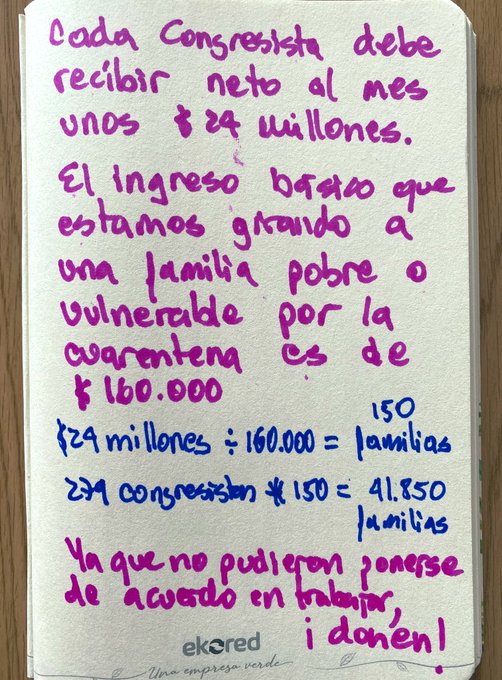 Cada Congresista debe
recibir neto al mes
unos $24 millones.
El ingreso básico que
estamos girando a
una familia pobre o
vulnerable por la
cuarentena es de
$160.000
$24 millones ÷ 160.000 = 150 familias
279 congresistas * 150 = 41.850 familias
Ya que no pudieron ponerse
de acuerdo en trabajar,
¡donen!
ekored
Una empresa verde